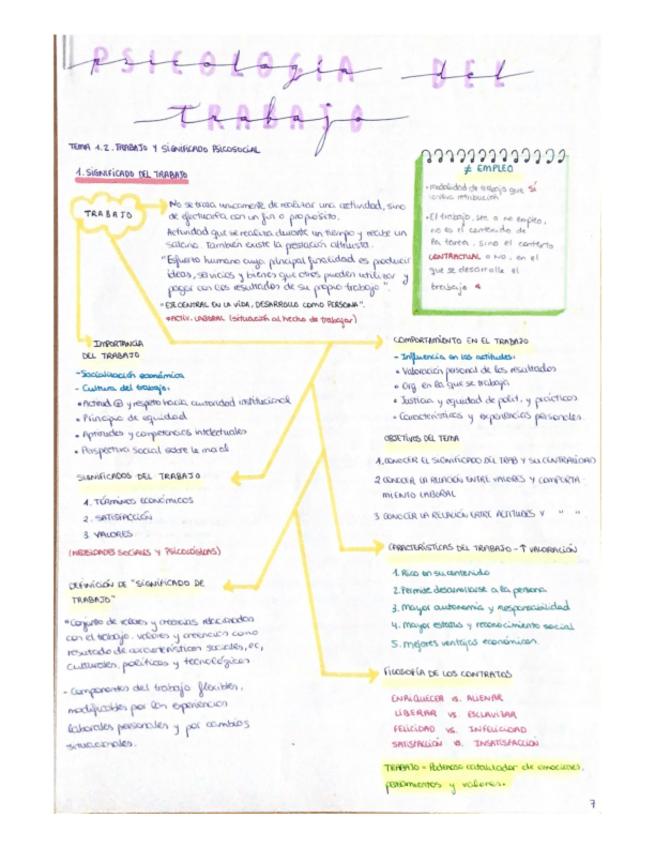 psicología del
trabajo
TEMA 1.2. TRABAJO Y SIGNIFICADO PSICOSOCIAL
1. SIGNIFICADO DEL TRABAJO
TRABAJO
No se trata unicamente de realizar una actividad, sino
de efectuarla con un fin o propósito.
Actividad que se realiza durante un tiempo y recibe un
salario. También existe la prestación altruista.
"Esfuerzo humano cuya principal finalidad es producir
ideas, servicios y bienes que otros pueden utilizar y
pagar con los resultados de su propio trabajo".
"EJE CENTRAL EN LA VIDA, DESARROLLO COMO PERSONA".
*ACTIV. LABORAL (situación al hecho de trabajar)
≠ EMPLEO
• modalidad de trabajo que sí
retribución
• El trabajo, sea o no empleo,
no es el contenido de
la tarea, sino el contexto
CONTRACTUAL o NO, en el
que se desarrolla el
trabajo
IMPORTANCIA
DEL TRABAJO
- Socialización económica
- Cultura del trabajo.
• Actitud ⊕ y respeto hacia autoridad institucional
• Principio de equidad
• Aptitudes y competencias intelectuales
• Perspectiva social sobre la moral
SIGNIFICADOS DEL TRABAJO
1. TÉRMINOS ECONÓMICOS
2. SATISFACCIÓN
3. VALORES
(NECESIDADES SOCIALES Y PSICOLÓGICAS)
DEFINICIÓN DE "SIGNIFICADO DE
TRABAJO"
"Conjunto de valores y creencias relacionadas
con el trabajo. valores y creencias como
resultado de características sociales, ec,
culturales, políticas y tecnológicas
- Componentes del trabajo flexibles,
modificables por las experiencias
laborales personales y por cambios
situacionales.
COMPORTAMIENTO EN EL TRABAJO
- Influencia en las actitudes.
• Valoración personal de los resultados
• Org en la que se trabaja
• Justicia y equidad de polít. y prácticas
• Características y experiencias personales.
OBJETIVOS DEL TEMA
1. CONOCER EL SIGNIFICADO DEL TRAB Y SU CENTRALIDAD
2 CONOCER LA RELACIÓN ENTRE VALORES Y COMPORTA-
MIENTO LABORAL
3 CONOCER LA RELACIÓN ENTRE ACTITUDES Y " "
CARACTERÍSTICAS DEL TRABAJO - ↑ VALORACIÓN
1. Rico en su contenido
2. Permite desarrollarse a la persona
3. Mayor autonomía y responsabilidad
4. Mayor estatus y reconocimiento social
5. Mejores ventajas económicas.
FILOSOFÍA DE LOS CONTRATOS
ENRIQUECER vs. ALIENAR
LIBERAR vs. ESCLAVIZAR
FELICIDAD vs. INFELICIDAD
SATISFACCIÓN vs. INSATISFACCIÓN
TRABAJO - Poderoso catalizador de emociones,
pensamientos y valores.
7